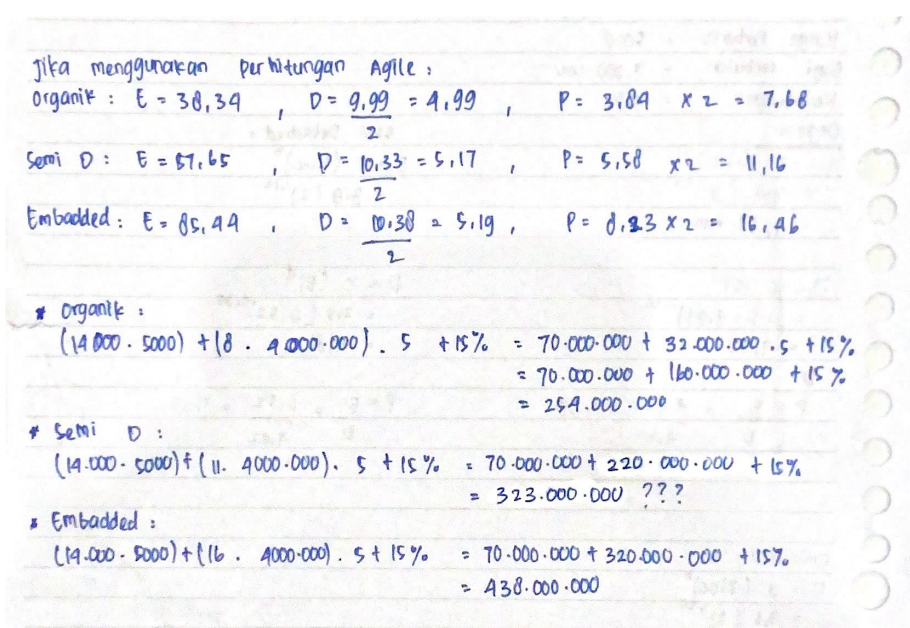 Jika menggunakan perhitungan Agile :
Organik : E = 38,34 , D = 9,99 / 2 = 4,99 , P = 3,84 x 2 = 7,68
Semi D : E = 57,65 , D = 10,33 / 2 = 5,17 , P = 5,58 x 2 = 11,16
Embadded : E = 85,44 , D = 10,38 / 2 = 5,19 , P = 8,23 x 2 = 16,46
* Organik :
(14000 . 5000) + (8 . 4000.000) . 5 + 15% = 70.000.000 + 32.000.000 . 5 + 15%
= 70.000.000 + 160.000.000 + 15%
= 254.000.000
* Semi D :
(14.000 . 5000) + (11 . 4000.000) . 5 + 15% = 70.000.000 + 220.000.000 + 15%
= 323.000.000 ???
* Embadded :
(14.000 . 5000) + (16 . 4000.000) . 5 + 15% = 70.000.000 + 320.000.000 + 15%
= 438.000.000